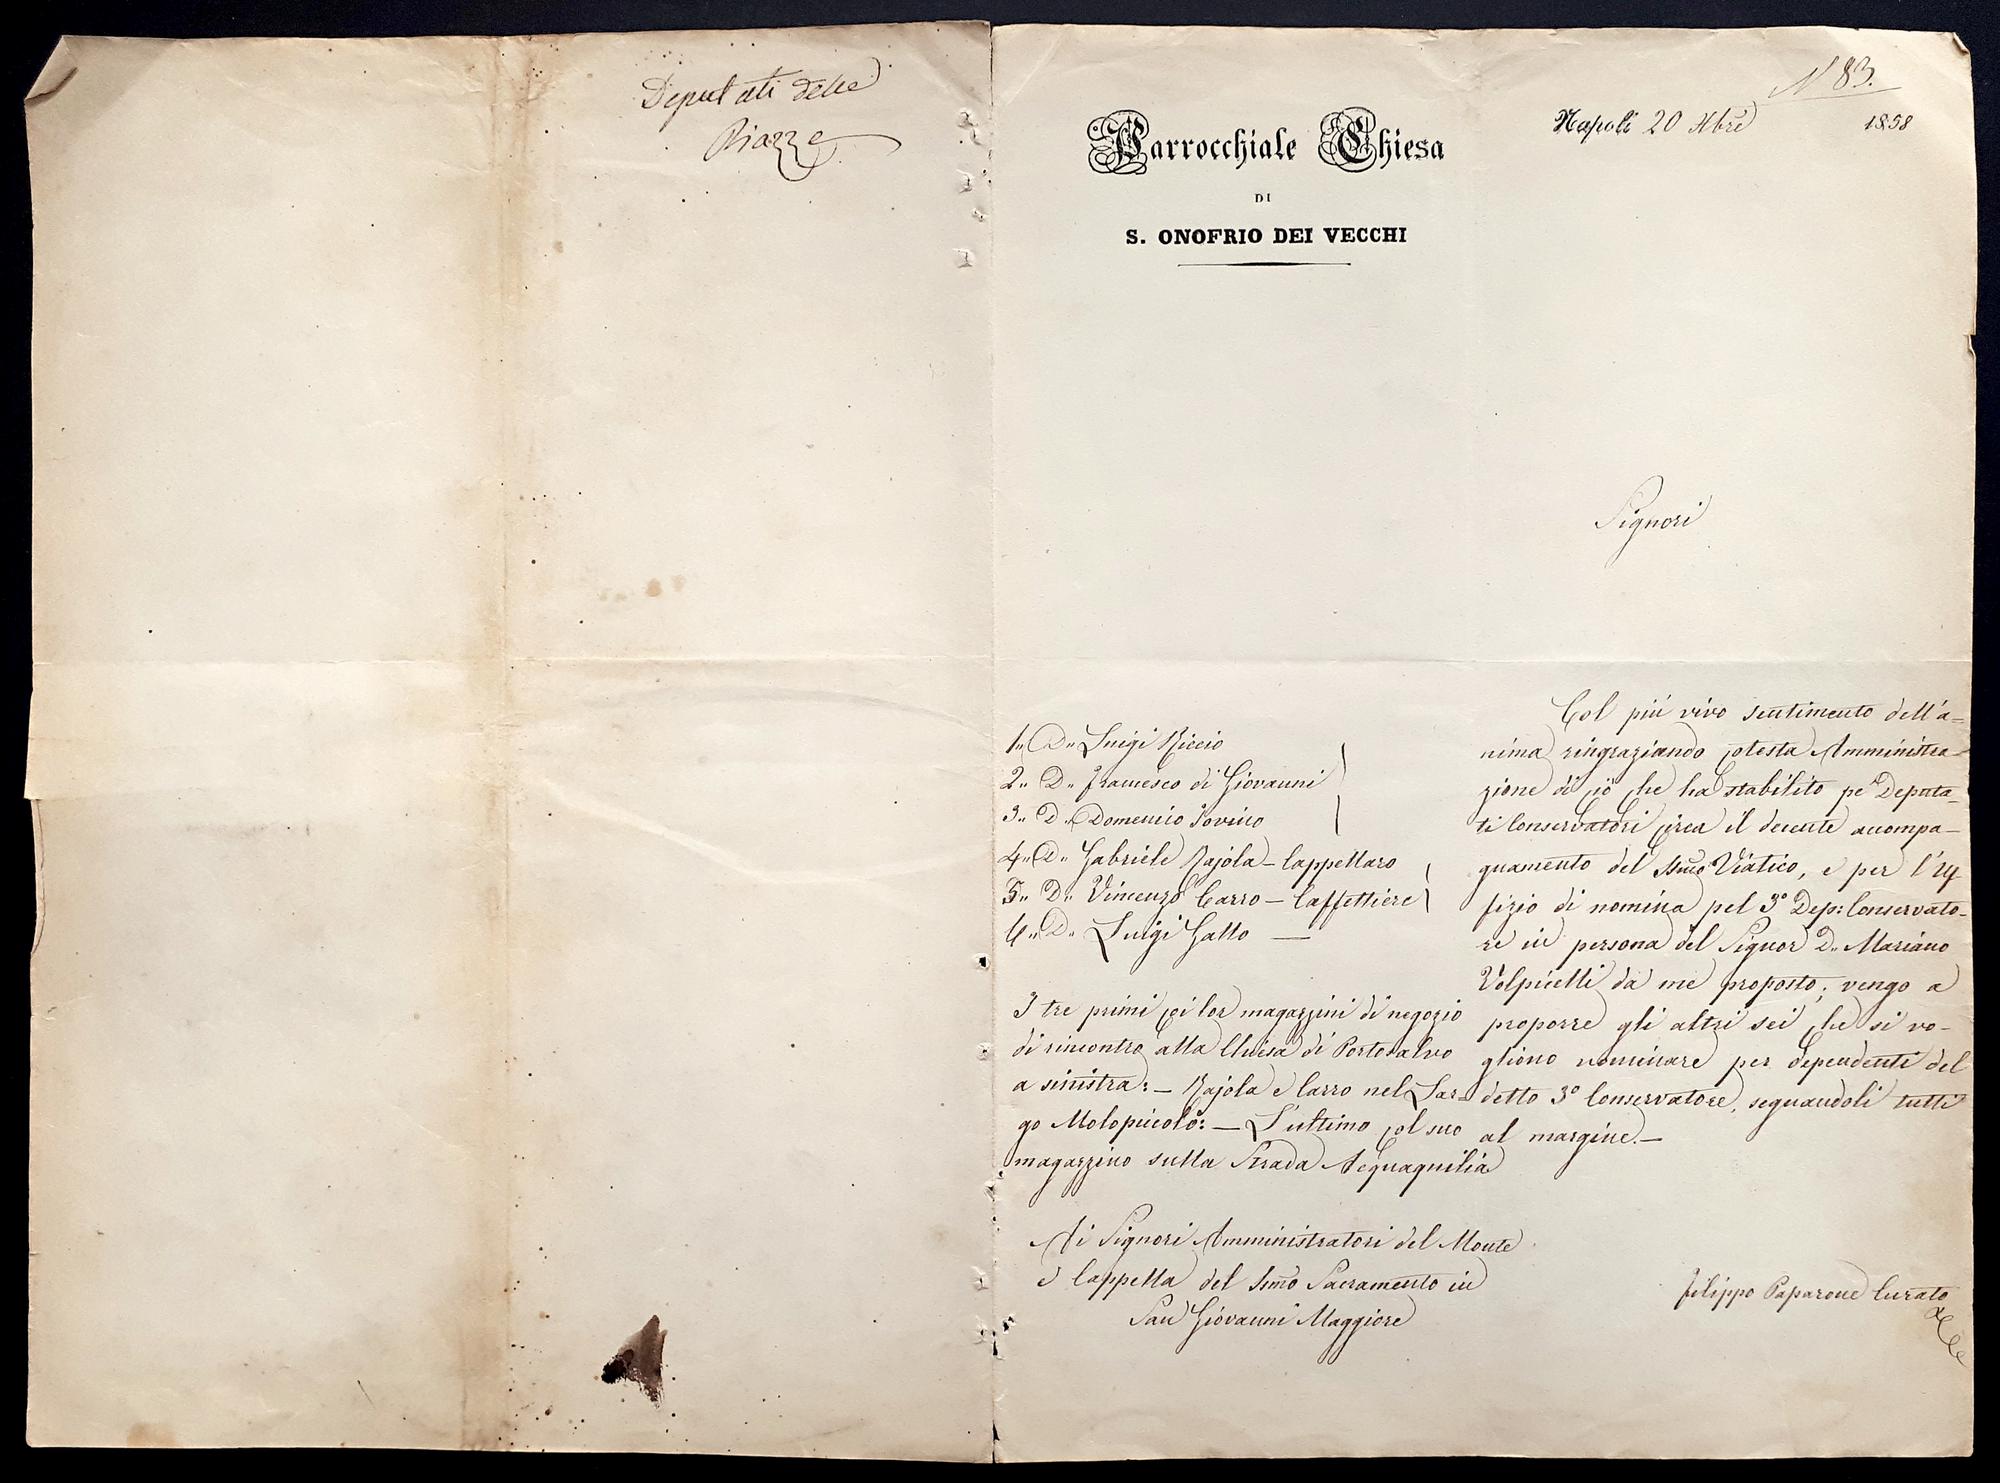 Deputati delle
Piazze
N 83.
Parrocchiale Chiesa
DI
S. ONOFRIO DEI VECCHI
Napoli 20 Xbre 1858
Signori
1.. D.. Luigi Riccio
2.. D.. Francesco di Giovanni
3.. D.. Domenico Iovino
4.. D.. Gabriele Rajola - Cappellaro
5.. D.. Vincenzo Carro - Caffettiere
6.. D.. Luigi Gallo —
I tre primi coi lor magazzini di negozio
di rincontro alla Chiesa di Portosalvo
a sinistra: - Rajola e Carro nel Lar-
go Molopiccolo: - L'ultimo col suo
magazzino sulla Strada Acquaquilia
Col più vivo sentimento dell'a=
nima ringraziando cotesta Amministra-
zione di ciò che ha stabilito pe' Deputa-
ti Conservatori circa il decente accompa-
gnamento del SSmo Viatico, e per l'uf
fizio di nomina pel 3º Dep: Conservato-
re in persona del Signor D.. Mariano
Volpicelli da me proposto; vengo a
proporre gli altri sei che si vo-
gliono nominare per dependenti del
detto 3º Conservatore, segnandoli tutti
al margine. -
Ai Signori Amministratori del Monte
e Cappella del SSmo Sacramento in
San Giovanni Maggiore
Filippo Paparone Curato